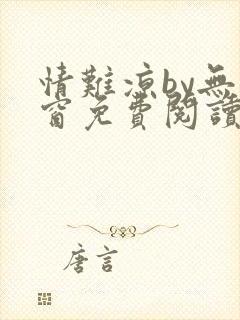 情難涼by無
窗免費閱讀
唐言